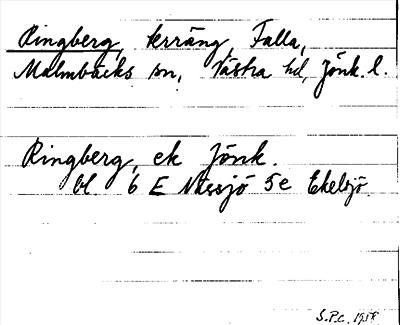 Ringberg, terräng, Falla,
Malmbäcks sn, Västra hd, Jönk. l.
Ringberg, ek Jönk.
bl 6 E Nässjö 5e Ekelsjö.
S.P.C. 1958.